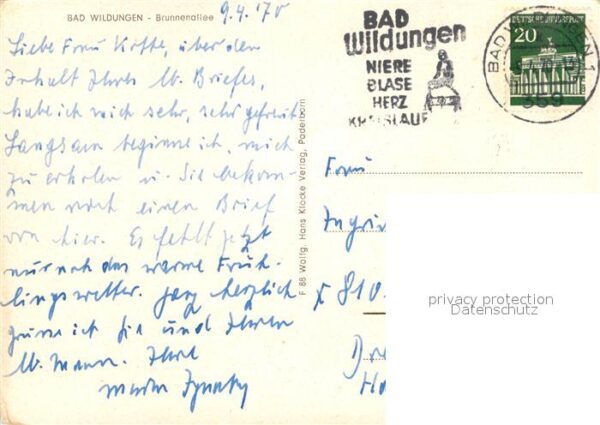 BAD WILDUNGEN - Brunnenallee
9.4.70
Liebe Frau Kötte, über den
Inhalt Ihres lb. Briefes,
habe ich mich sehr, sehr gefreut.
Langsam beginne ich, mich
zu erholen u. Sie bekom-
men noch einen Brief
von hier. Es fehlt jetzt
nur noch das warme Früh-
lingswetter. Ganz herzlich
grüsse ich Sie und Ihren
lb. Mann. Ihre
F 88 Wollg. Hans Klocke Verlag, Paderborn
BAD
Wildungen
NIERE
BLASE
HERZ
KREISLAUF
DEUTSCHE BUNDESPOST
20
BAD WILDUNGEN 1
359
Frau
Ingri
x 810
Dre
privacy protection
Datenschutz